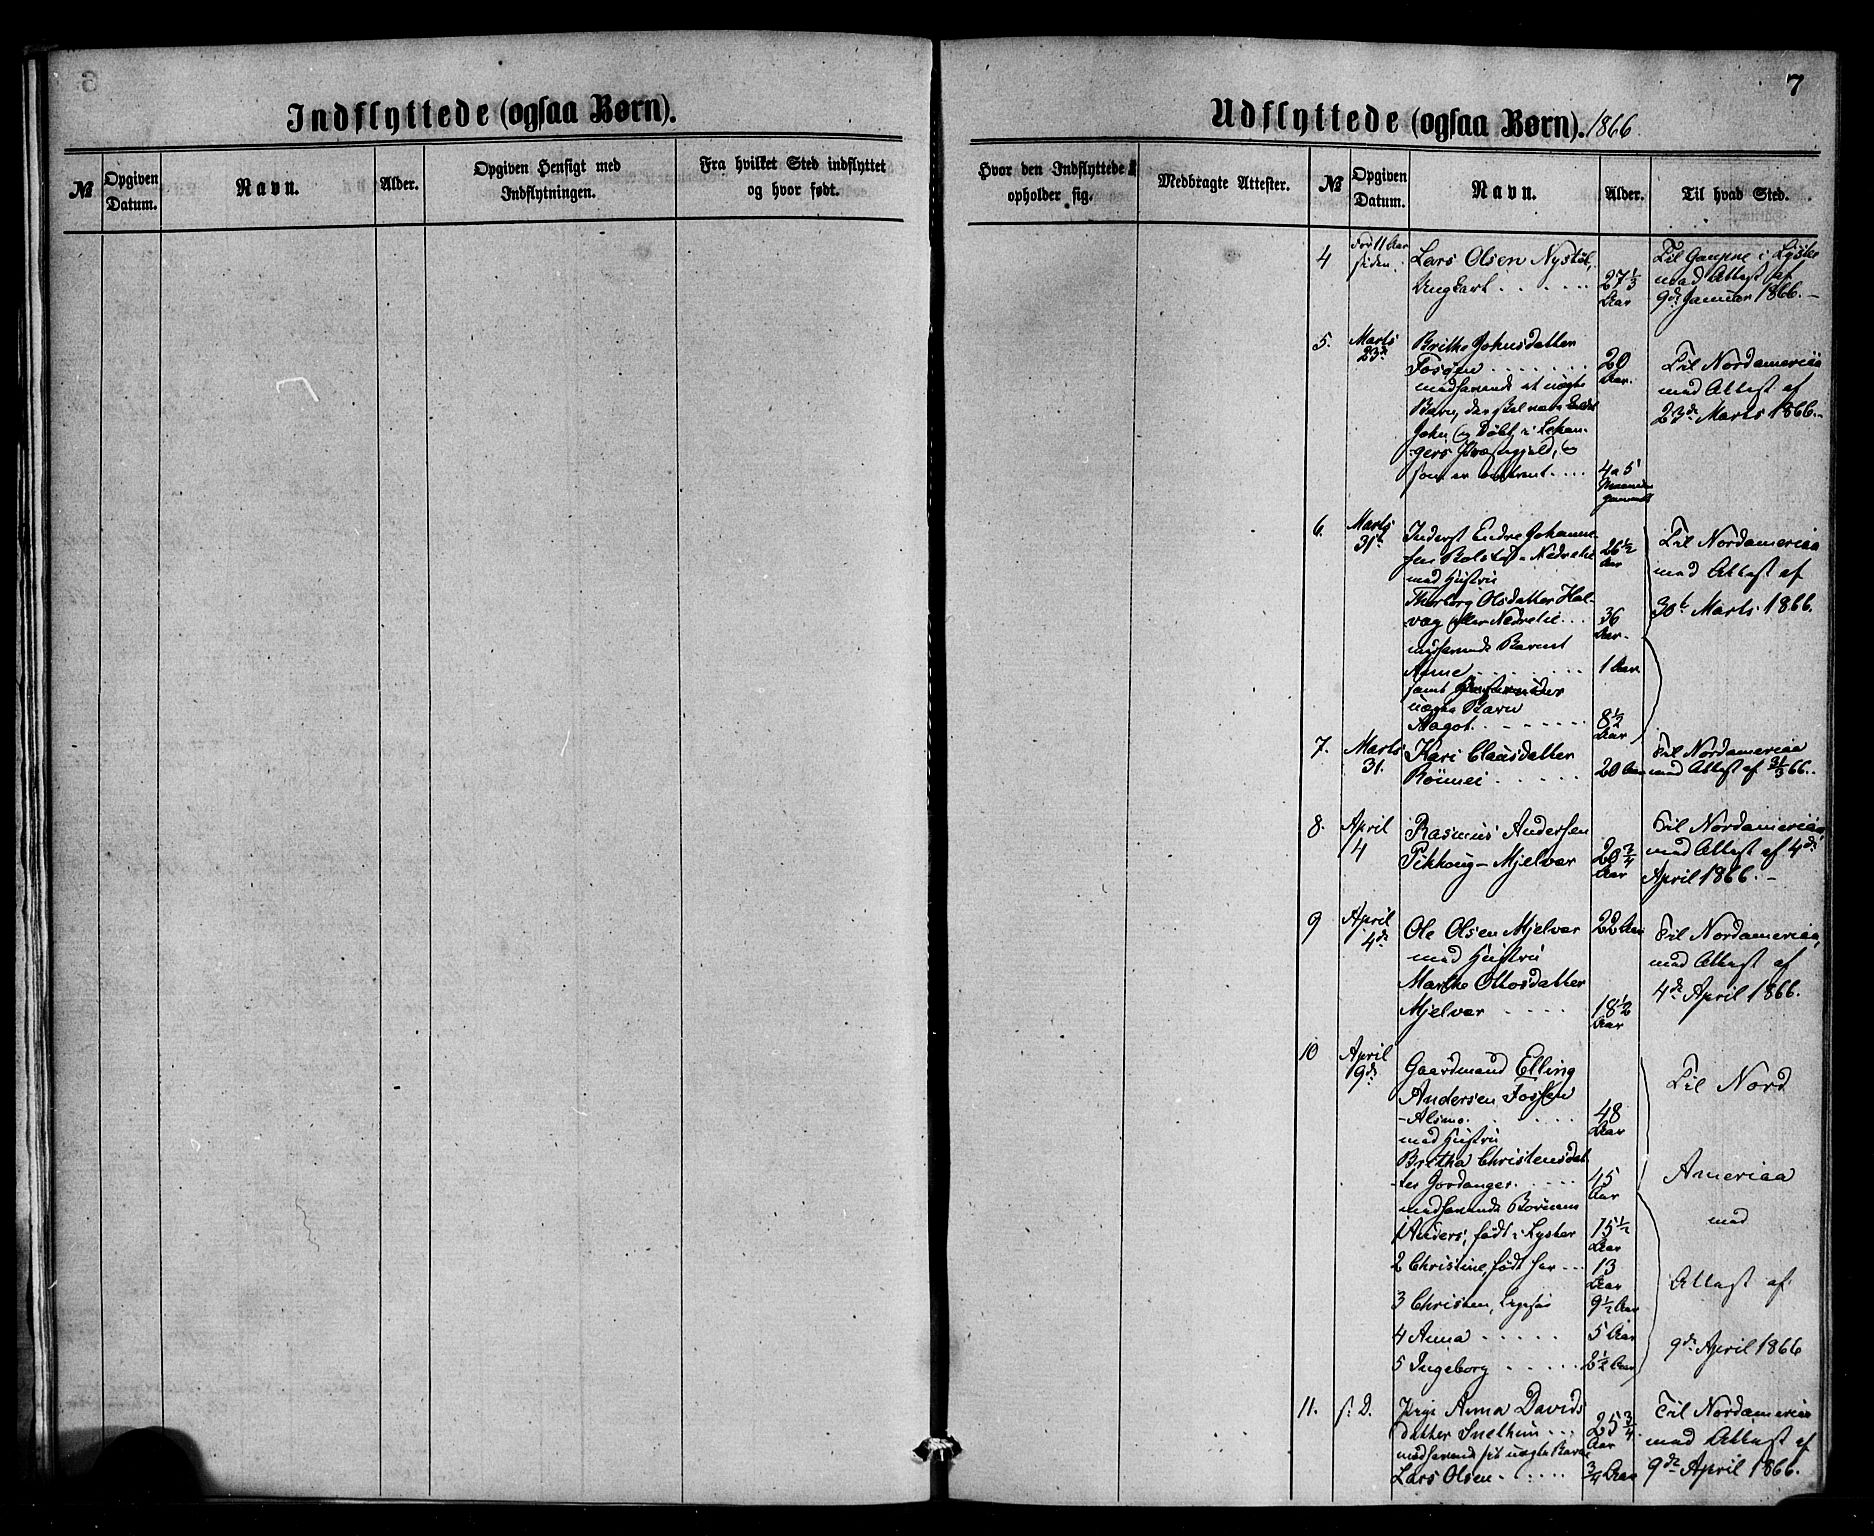 Indflyttede (ogsaa Børn).
№
Opgiven Datum.
Navn.
Alder.
Opgiven Hensigt med Indflytningen.
Fra hvilket Sted indflyttet og hvor født.
7
Udflyttede (ogsaa Børn). 1866
Hvor den Indflyttede opholder sig.
Medbragte Attester.
№
Opgiven Datum.
Navn.
Alder.
Til hvad Sted.
4 For 11 Aar siden. Lars Olsen Nystøl, Til Gaupne i Lyster
Ungkarl 27 1/3 Aar med Attest af
9de Januar 1866.
5. Marts 23de Brithe Johnsdatter
Fosøen 20 Aar. Til Nordamerica
medhavende et uægte med Attest af
Barn, der skal være kaldet 23de Marts 1866.
John og Døbt i Lekan-
gers Præstegjeld,
som er omtrent 4 a 5 Maaneder gammelt
6. Marts 31te Inderst Endre Johanne-
sen Bolstad Nedrelie 26 1/2 Aar Til Nordamerica
med Hustru med Attest af
Thorborg Olsdatter Hal- 30te Marts 1866.
væg eller Nedrelie 36 Aar.
medhavende Barnet
Anne 1 Aar
samt
uægte Barn
Aagot. 8 1/2 Aar
7. Marts 31. Kari Clausdatter Til Nordamerica
Rönnei 20 Aar med Attest af 31/3 66.
8. April 4 Rasmus Andersen Til Nordamerica
Pikhoug-Mjelvær 20 3/4 Aar med Attest af 4de
April 1866.
9 April 4de Ole Olsen Mjelvær 22 Aar Til Nordamerica,
med Hustru med Attest af
Marthe Ottosdatter 4de April 1866.
Mjelvær 18 1/2 Aar
10 April 9de Gaardmand Elling Til Nord
Andersen Fossen
-Alsmo. 48 Aar
med Hustru
Britha Christensdat- America
ter Jordanger. 45 Aar
medhavende Børnene med
1 Anders, født i Lyster 15 1/2 Aar
2 Christine, født her 13 Aar Attest af
3 Christen, 9 1/2 Aar
4 Anna 5 Aar 9de April 1866
5 Ingeborg 2 1/2 Aar
11. s. D. Pige Anna Davids Til Nordamerica
datter Snethun 25 3/4 Aar med Attest af
medhavende sit uægte Barn 9de April 1866.
Lars Olsen 3/4 Aar